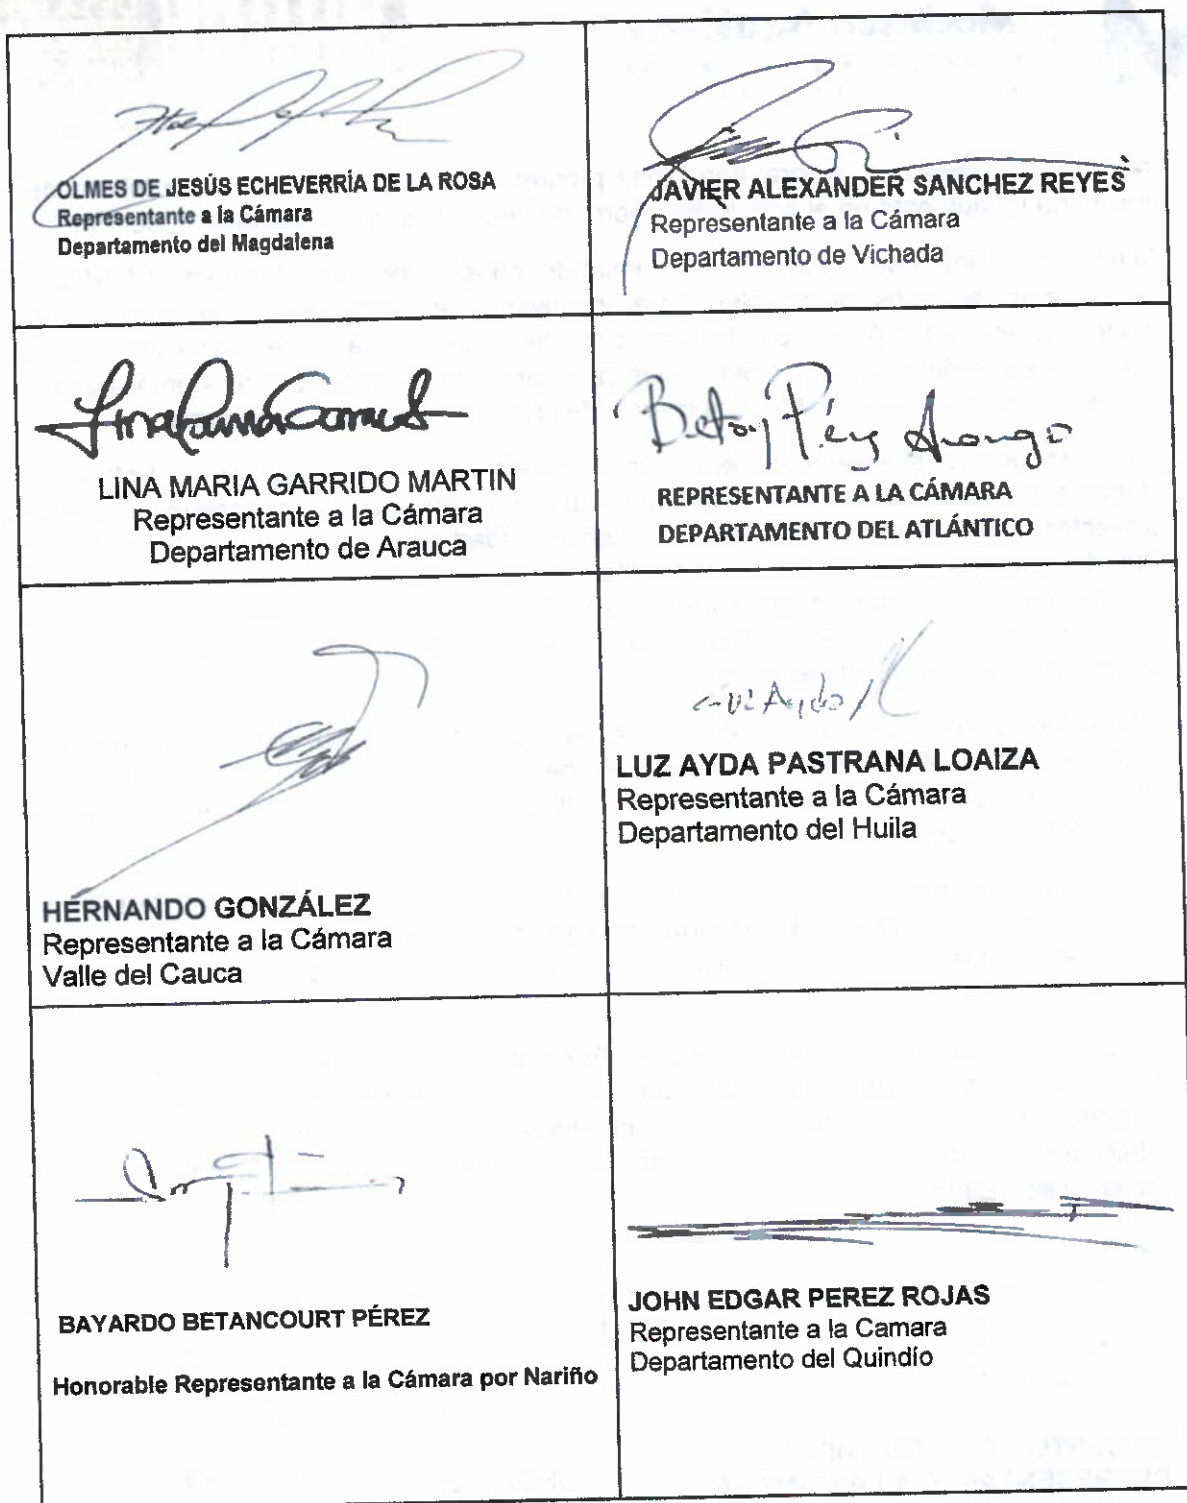 OLMES DE JESÚS ECHEVERRÍA DE LA ROSA
Representante a la Cámara
Departamento del Magdalena
JAVIER ALEXANDER SANCHEZ REYES
Representante a la Cámara
Departamento de Vichada
LINA MARIA GARRIDO MARTIN
Representante a la Cámara
Departamento de Arauca
Betsy Pérez Arango
REPRESENTANTE A LA CÁMARA
DEPARTAMENTO DEL ATLÁNTICO
HERNANDO GONZÁLEZ
Representante a la Cámara
Valle del Cauca
LUZ AYDA PASTRANA LOAIZA
Representante a la Cámara
Departamento del Huila
BAYARDO BETANCOURT PÉREZ
Honorable Representante a la Cámara por Nariño
JOHN EDGAR PEREZ ROJAS
Representante a la Camara
Departamento del Quindío